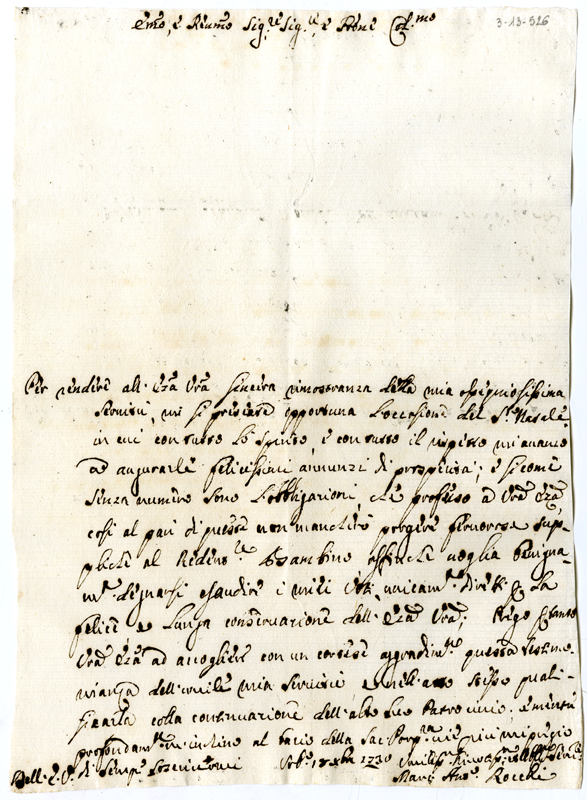 Emo, e Reumo Sig.re Sig.re e Prone Col.mo
3-13-526
Per rendere all' Eza Vra sincera rimostranza della mia ossequiosissima
servitù, mi si presenta opportuna l'occasione del S. Natale
in cui con tutto lo spirito, e con tutto il rispetto m'avanzo
ad augurarle felicissimi annunzi di prosperità; e si come
senza numero sono l'obbligazioni, che professo a Vra Eza,
così al pari di queste non mancherò porgere fervorose sup-
pliche al Reden.re Bambino affinche voglia benigna-
m.te degnarsi esaudire i miei voti unicam.te diretti p la
felice, e lunga conservazione dell' Eza Vra; Prego p tanto
Vra Eza ad accogliere con un cortese aggradim.to questa testimo-
nianza dell' umile mia servitù, e
colla continuazione dell' alto suo Patrocinio, e mentre
profondam.te m'inchino al bacio della Sac. Porp.ra mi
Dell' E. V. di 1730
Rocchi